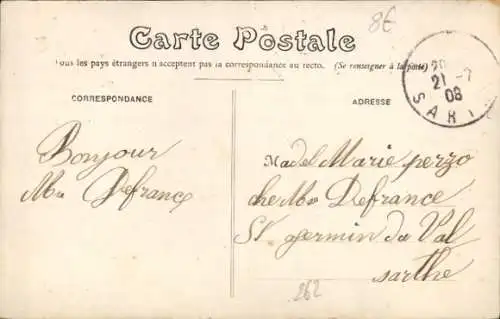 8€
Carte Postale
Tous les pays étrangers n'acceptent pas la correspondance au recto. (Se renseigner à la poste)
21 -7
08
SART
CORRESPONDANCE
ADRESSE
Bonjour
Mr Defrance
Madel Marie perzo
che Mr Defrance
St germin du Val
sarthe
262